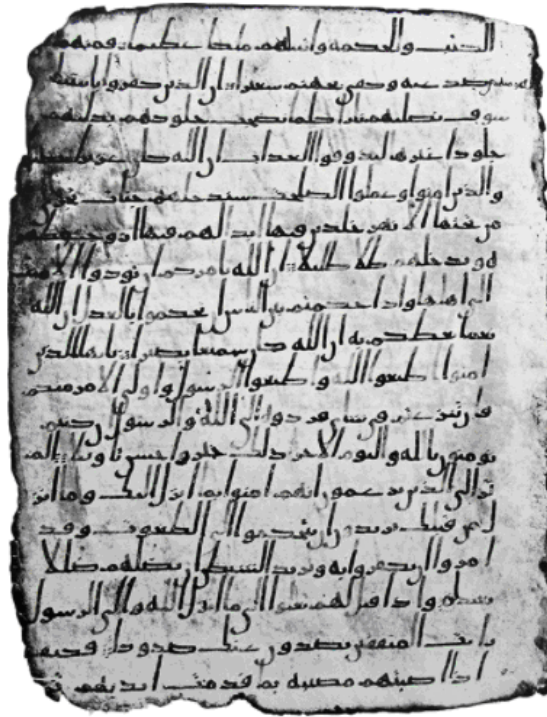 الكتب والحكمه واتينهم ملكا عظيما فمنهم
من صد عنه وكفى بجهنم سعيرا ان الذين كفروا بايتنا
سوف نصليهم نارا كلما نضجت جلودهم بدلنهم
جلودا غيرها ليذوقوا العذاب ان الله كان عزيزا حكيما
والذين امنوا وعملوا الصلحت سندخلهم جنات تجري
من تحتها الانهر خلدين فيها ابدا لهم فيها ازوج مطهر
ه وندخلهم ظلا ظليلا ان الله يامركم ان تودوا الامنت
الى اهلها واذا حكمتم بين الناس ان تحكموا بالعدل ان الله
نعما يعظكم به ان الله كان سميعا بصيرا يايها الذين
امنوا اطيعوا الله واطيعوا الرسول واولي الامر منكم
فان تنزعتم في شاي فردوه الى الله والرسول ان كنتم
تومنون بالله واليوم الاخر ذلك خير واحسن تاويلا الم
تر الى الذين يزعمون انهم امنوا بما انزل اليك وما انز
ل من قبلك يريدون ان يتحكموا الى الطغوت وقد
امروا ان يكفروا به ويريد الشيطن ان يضلهم ضللا
بعيدا واذا قيل لهم تعلوا الى ما انزل الله والى الرسول
رايت المنفقين يصدون عنك صدودا فكيف
اذا اصبتهم مصيبه بما قدمت ايديهم ثم